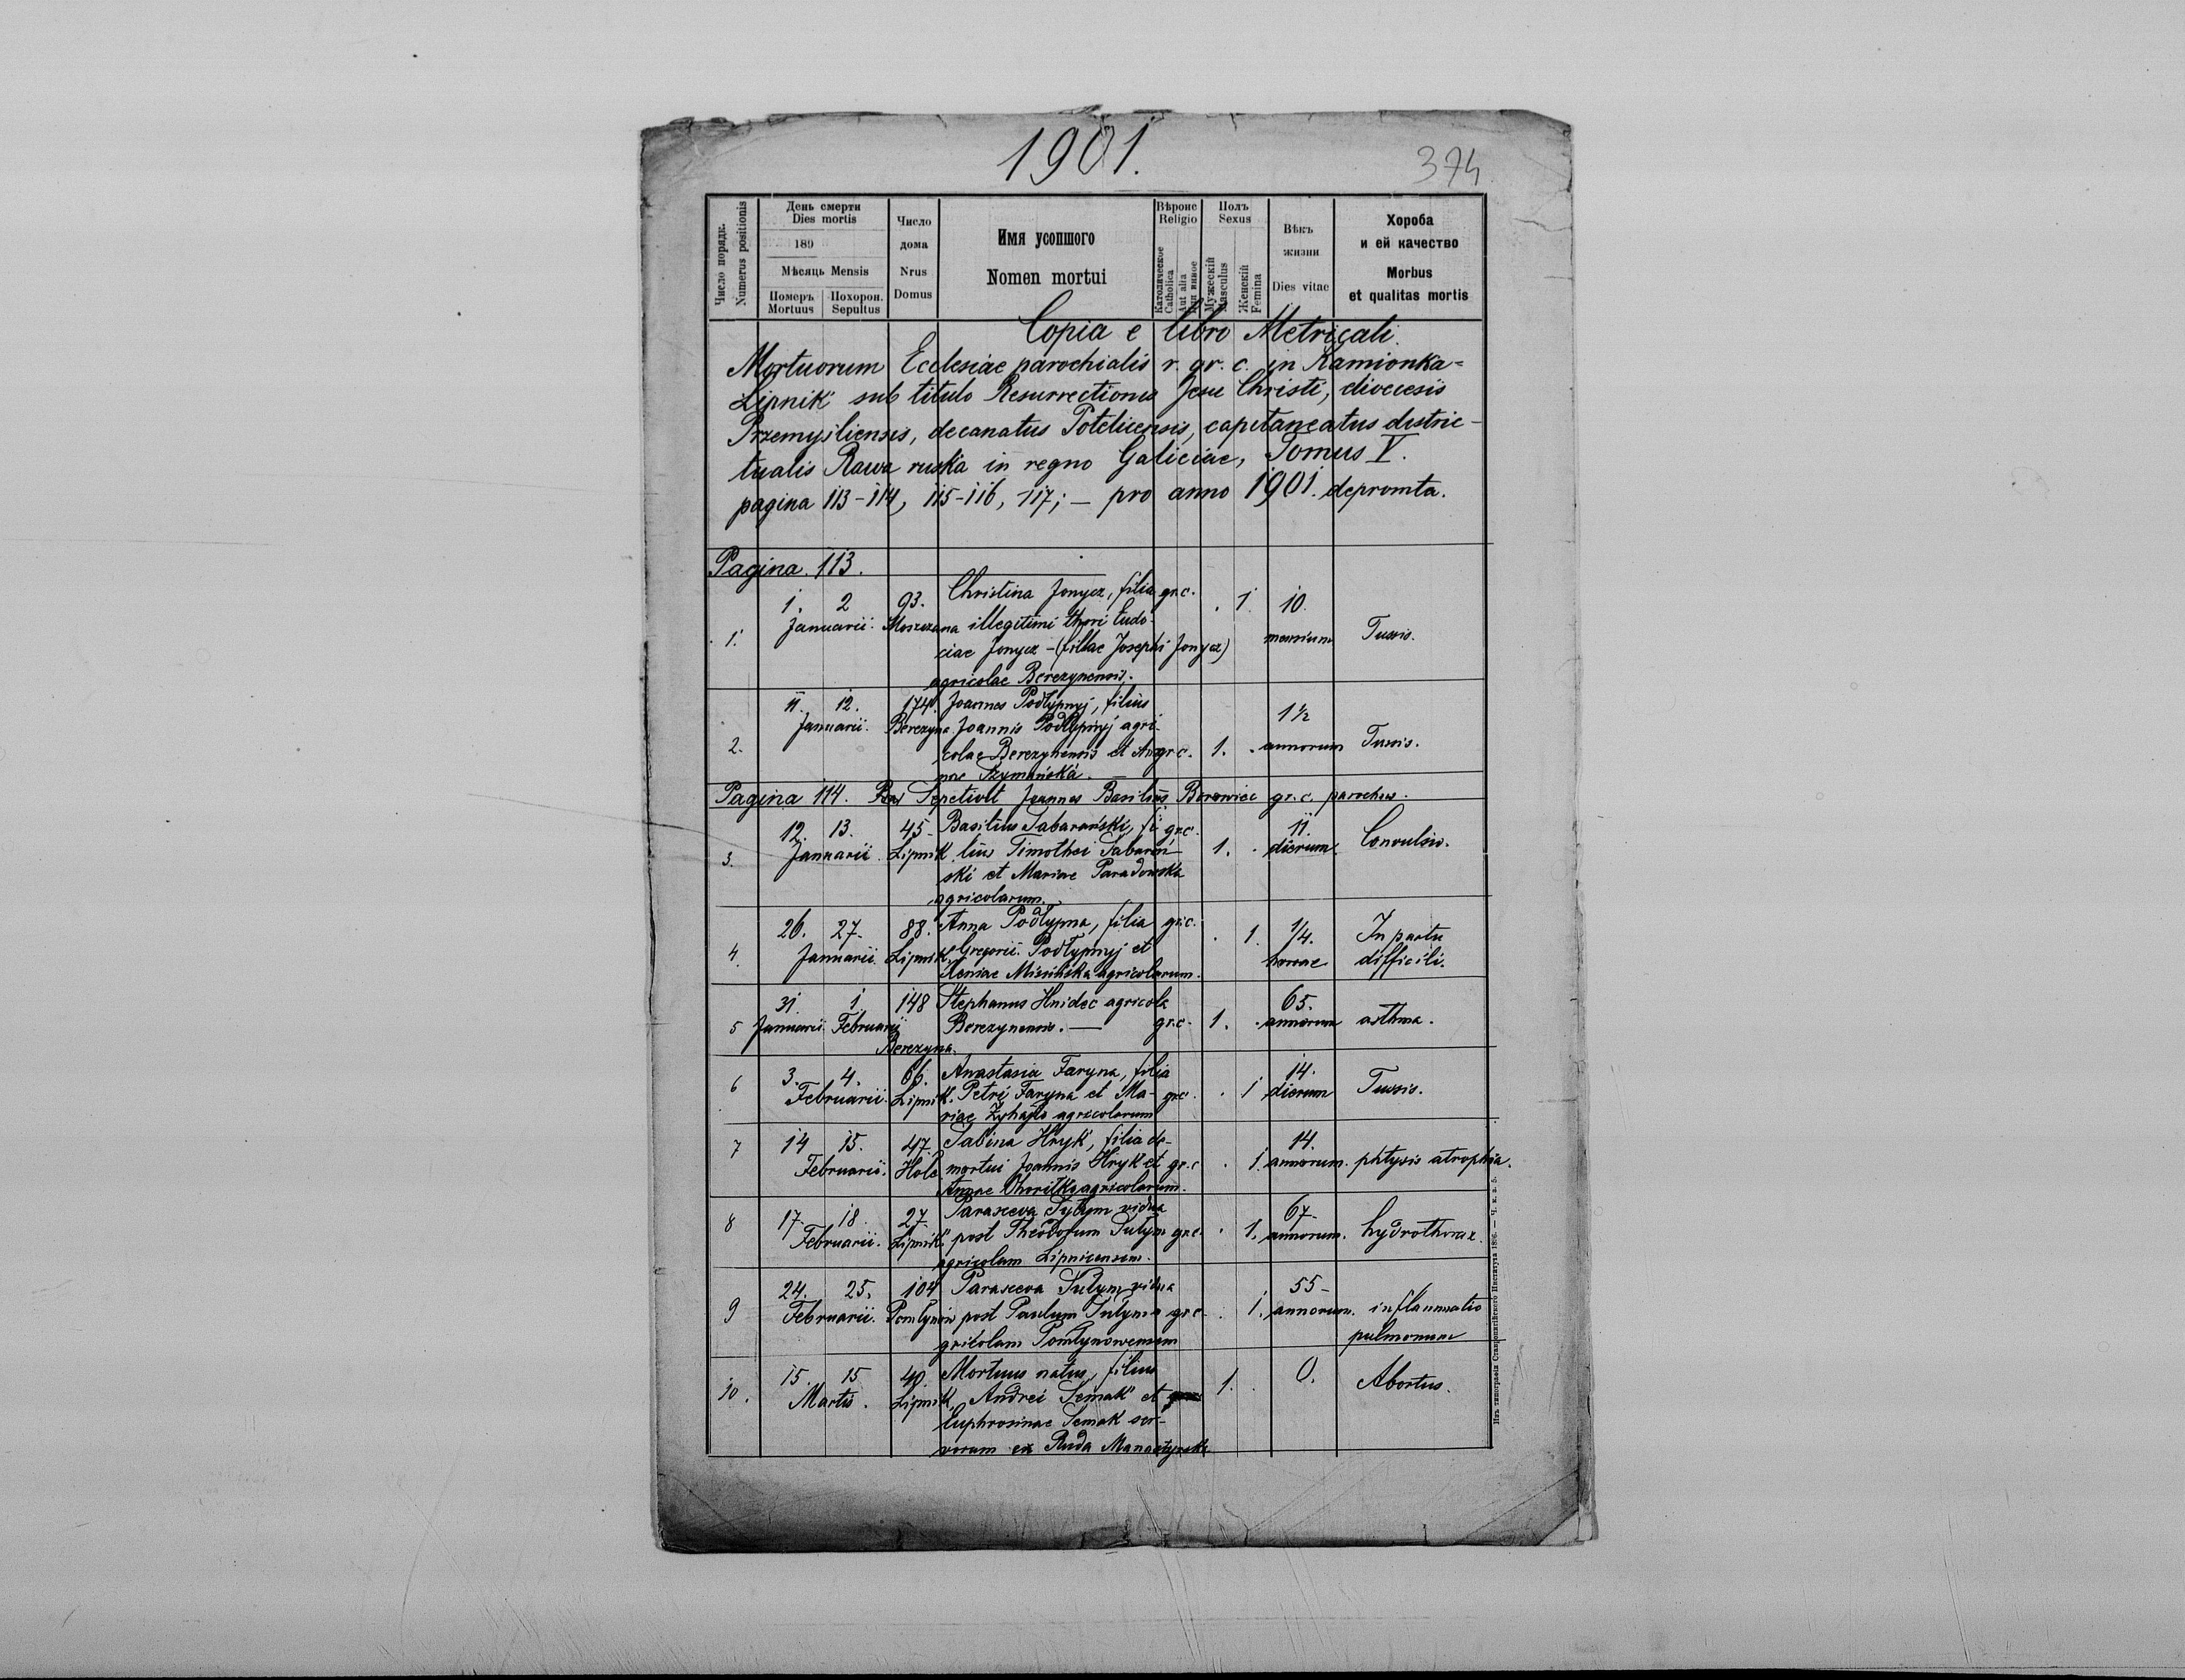 1901.
374
Число порядк. Numerus positionis
День смерти
Dies mortis
189
Мѣсяць Mensis
Померъ Mortuus
Похорон. Sepultus
Число дома Nrus Domus
Имя усопшого
Nomen mortui
Вѣроис Religio
Католическое Catholica
Aut alia
Полъ Sexus
Мужескій Masculus
Женскій Femina
Вѣкъ жизни
Dies vitae
Хороба и ей качество
Morbus et qualitas mortis
Copia e libro Metricali
Mortuorum Ecclesiae parochialis r. gr. c. in Kamionka-
Lipnik sub titulo Resurrectionis Jesu Christi, dioecesis
Przemysliensis, decanatus Potelicensis, capitaneatus distric-
tualis Rawa ruska in regno Galiciae, Tomus V.
pagina 113-114, 115-116, 117; – pro anno 1901. depromta.
Pagina. 113.
1. 2 93. Christina Jonycz, filia gr.c. . 1. 10.
1. Januarii. illegitimi thori Eudo-
ciae Jonycz – (filiae Josephi Jonycz) mensium Tussis.
agricolae Berezynensis.
11. 12. 174. Joannes Podłypnyj, filius 1½
Januarii. Berezyna Joannis Podłypnyj agri-
2. colae Berezynensis et An gr.c. 1. . annorum Tussis.
nae Szymańska. –
Pagina 114. Joannes Basilius Borowiec gr. c. parochus.
12. 13. 45- Basilius Tabarański, fi- gr.c. 11.
3. Januarii. Lipnik. lius Timothei Tabarań- 1. . dierum. Convulsio.
ski et Mariae Paradowska
agricolarum.
26. 27. 88. Anna Podłypna, filia gr.c. . 1. 1/4.
4. Januarii. Lipnik. Gregorii Podłypnyj et horae In partu difficili.
agricolarum.
31. 1 148 Stephanus Hnideć agricola 65.
5 Januarii Februarii Berezynensis. — gr.c. 1. . annorum asthma.
Berezyna.
6 3. 4. 66. Anastasia Faryna, filia 14.
Februarii. Lipnik. Petri Faryna et Ma- gr.c. . 1 dierum Tussis.
riae agricolarum
7 14 15. 47. Sabina Hryk, filia de- 14.
Februarii. Hole mortui Joannis Hryk et gr.c . 1. annorum. phtysis atrophia.
Annae agricolarum.
8 17. 18. 27. Parasceva Tutym vidua 67-
Februarii. Lipnik. post Theodorum Tutym gr.c. . 1. annorum. hydrothorax.
agricolam Lipnicensem.
24. 25. 104 Parasceva Tutym vidua 55-
9 Februarii. Pomłynów post Paulum Tutym a gr.c. . 1. annorum. inflammatio
gricolam Pomłynowensem pulmonum
15. 15 40. Mortuus natus, filius 0.
10. Martii. Lipnik, Andrei Semak et 1. . Abortus.
Euphrosinae Semak ser-
vorum ex Ruda Manastyrska
Изъ типографіи Ставропигійского Института 1896. — Ч. к. а. 5.